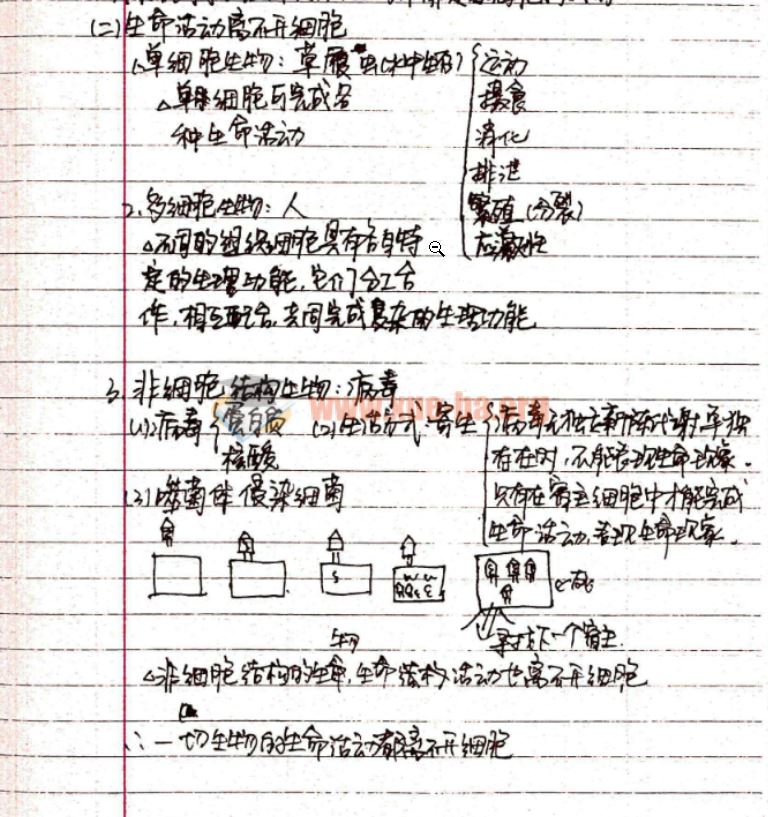 (二)生命活动离不开细胞
1.单细胞生物：草履虫(水中生存) 运动
摄食
△单细胞可完成各
种生命活动 消化
排泄
2.多细胞生物：人 繁殖(分裂)
△不同的组织细胞具有各自特 应激性
定的生理功能，它们分工合
作，相互配合，共同完成复杂的生理功能
3.非细胞结构生物：病毒
(1)病毒 蛋白质 (2)生活方式：寄生 病毒无独立新陈代谢，单独
核酸 存在时，不能表现生命现象。
(3)噬菌体侵染细菌 只有在宿主细胞中才能完成
生命活动，表现生命现象。
寻找下一个宿主
生物
△非细胞结构的生命，生命活动也离不开细胞
∴一切生物的生命活动都离不开细胞